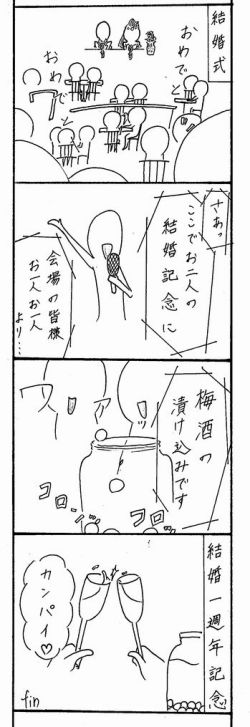 結婚式
おめでと
おめでと
さあっ
ここでお二人の
結婚記念に
会場の皆様
お一人お一人
より…
梅酒の
漬け込みです
ワァーッ
コロ
コロ…
結婚一週年記念
カンパイ♡
fin